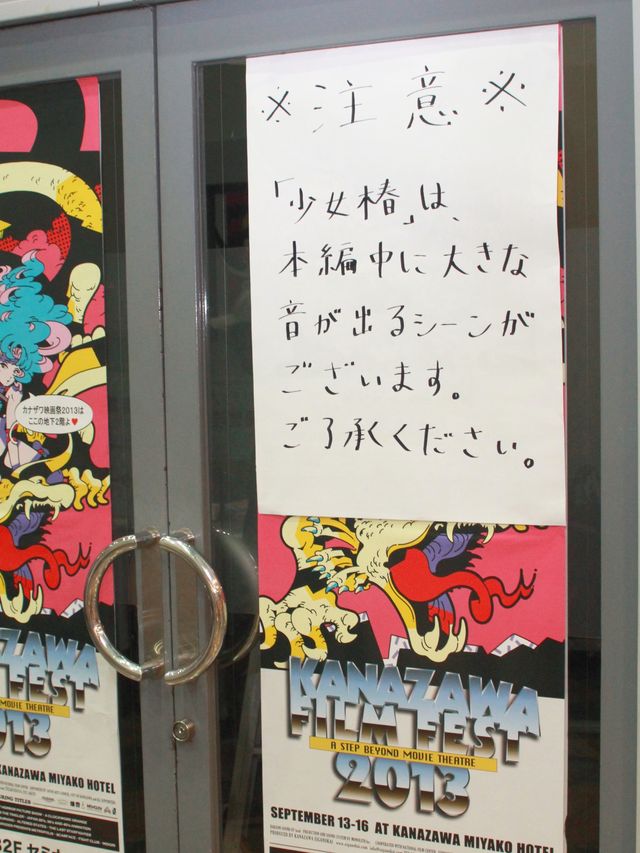 ※注意※
「少女椿」は、
本編中に大きな
音が出るシーンが
ございます。
ご了承ください。
カナザワ映画祭2013は
ここの地下2階よ♥
KANAZAWA
FILM FEST
A STEP BEYOND MOVIE THEATRE
2013
SEPTEMBER 13-16 AT KANAZAWA MIYAKO HOTEL
ZAWA
FEST
MOVIE THEATRE
013
KANAZAWA MIYAKO HOTEL